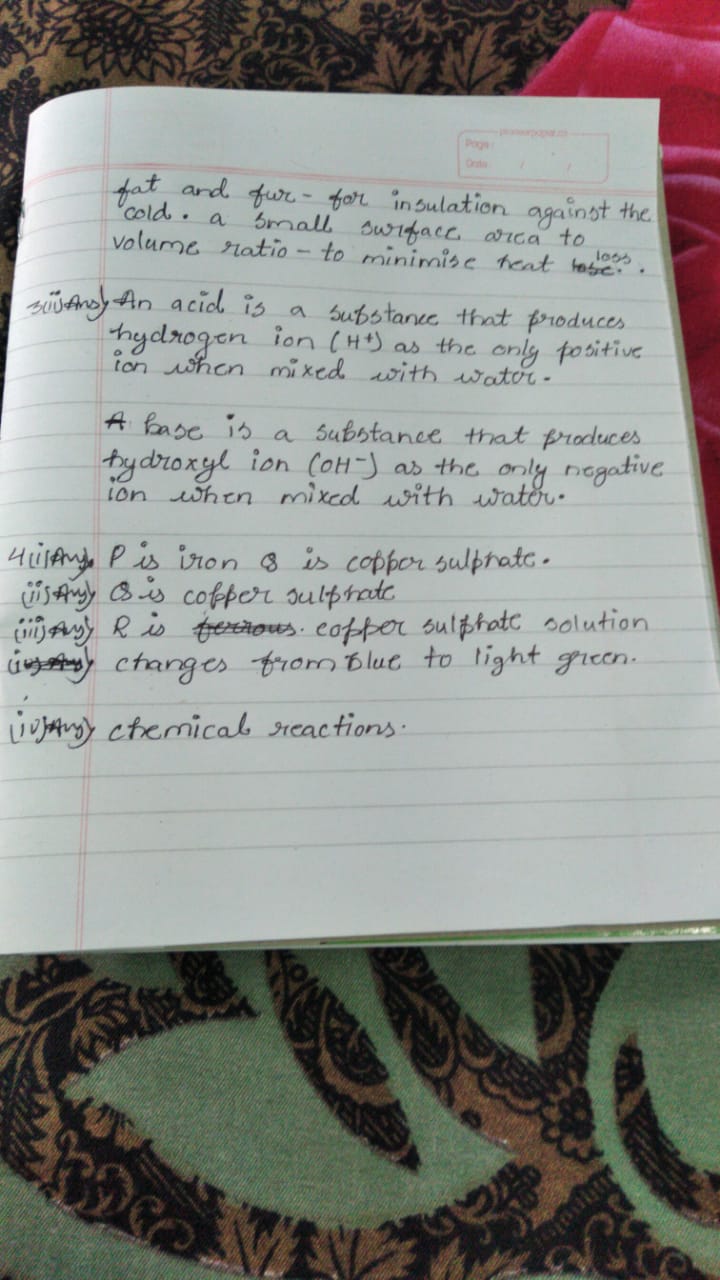 pioneerpaper.co
Page:
Date: / /
fat and fur - for insulation against the
cold. a small surface area to
volume ratio - to minimise heat loss.
3(ii)Ans) An acid is a substance that produces
hydrogen ion (H+) as the only positive
ion when mixed with water.
A base is a substance that produces
hydroxyl ion (OH-) as the only negative
ion when mixed with water.
4(i)Ans). P is iron Q is copper sulphate.
(ii)Ans) Q is copper sulphate
(iii)Ans) R is ferrous. copper sulphate solution
changes from blue to light green.
(iv)Ans) chemical reactions.